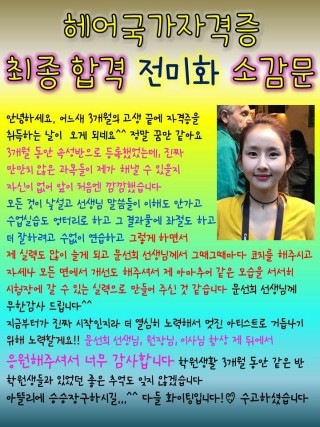 헤어국가자격증
최종 합격 전미화 소감문
안녕하세요. 어느새 3개월의 고생 끝에 자격증을
취득하는 날이 오게 되네요^^ 정말 꿈만 같아요
3개월 동안 속성반으로 등록했었는데, 진짜
만만치 않은 과목들이 제가 해낼 수 있을지
자신이 없어 앞이 처음엔 깜깜했습니다
모든 것이 낯설고 선생님 말씀들이 이해도 안가고
수업실습도 엉터리로 하고 그 결과물에 좌절도 하고
더 잘하려고 수없이 연습하고 그렇게 하면서
제 실력도 많이 늘게 되고 문선희 선생님께서 그때그때마다 코치를 해주시고
자세나 모든 면에서 개선도 해주셔서 제 아마추어 같은 모습을 서서히
시험장에 갈 수 있는 실력으로 만들어 주신 것 같습니다 문선희 선생님께
무한감사 드립니다^^
지금부터가 진짜 시작인지라 더 열심히 노력해서 멋진! 아티스트로 거듭나기
위해 노력할게요!! 문선희 선생님, 원장님, 이사님 항상 제 뒤에서
응원해주셔서 너무 감사합니다 학원생활 3개월 동안 같은 반
학원생들과 있었던 좋은 추억도 잊지 않겠습니다
아뜰리에 승승장구하시길,,,^^ 다들 화이팅입니다!♡ 수고하셨습니다